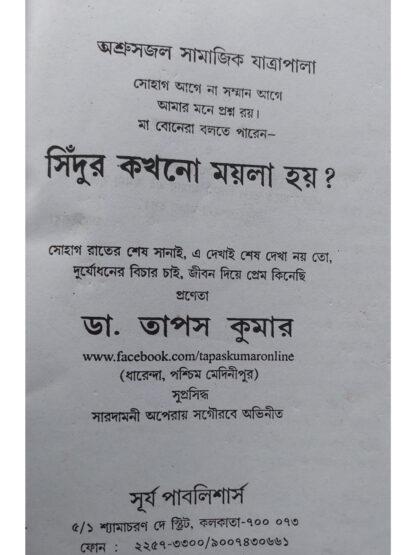 অশ্রুসজল সামাজিক যাত্রাপালা
সোহাগ আগে না সম্মান আগে
আমার মনে প্রশ্ন রয়।
মা বোনেরা বলতে পারেন–
সিঁদুর কখনো ময়লা হয় ?
সোহাগ রাতের শেষ সানাই, এ দেখাই শেষ দেখা নয় তো,
দুর্যোধনের বিচার চাই, জীবন দিয়ে প্রেম কিনেছি
প্রণেতা
ডা. তাপস কুমার
www.facebook.com/tapaskumaronline
(ধারেন্দা, পশ্চিম মেদিনীপুর)
সুপ্রসিদ্ধ
সারদামনী অপেরায় সগৌরবে অভিনীত
সূর্য পাবলিশার্স
৫/১ শ্যামাচরণ দে স্ট্রিট, কলকাতা-৭০০ ০৭৩
ফোন : ২২৫৭-৩৩০০/৯০০৭৪৩০৬৬১